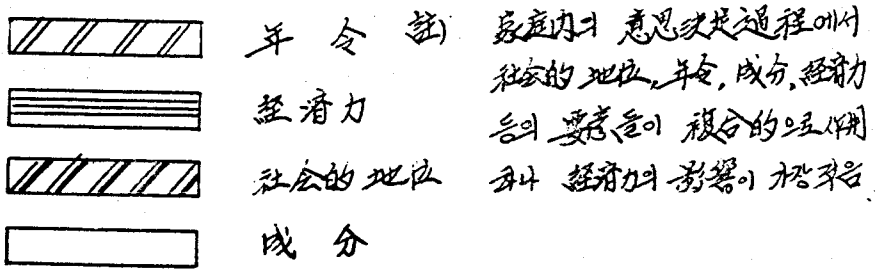 年 令
経済力
社会的 地位
成 分
註) 家庭内의 意思決定過程에서
社会的 地位, 年令, 成分, 経済力
등의 要素들이 複合的으로 作用
하나 経済力의 影響이 가장 적음.